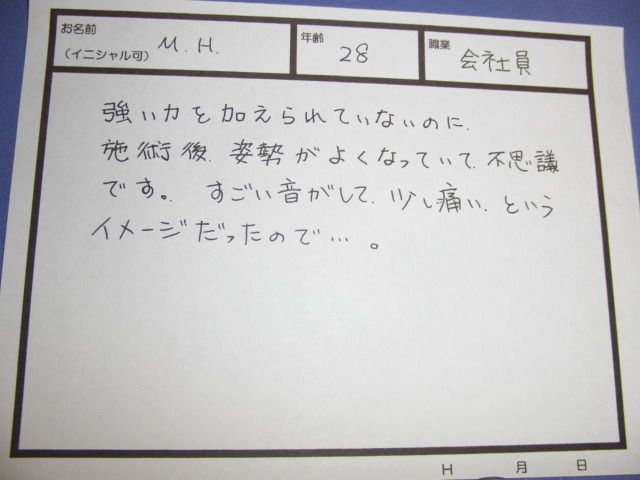 お名前
(イニシャル可) M.H.
年齢 28
職業 会社員
強い力を加えられていないのに、
施術後、姿勢がよくなっていて、不思議
です。 すごい音がして、少し痛い、という
イメージだったので…。
H 月 日